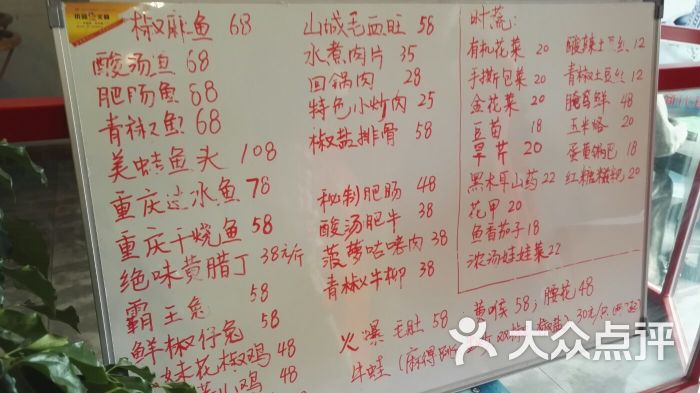 椒麻鱼 68
酸汤鱼 68
肥肠鱼 68
青椒鱼 68
美蛙鱼头 108
重庆过水鱼 78
重庆干烧鱼 58
绝味黄腊丁 38元/斤
霸王兔 58
鲜椒仔兔 58
妹花椒鸡 48
山鸡 48
山城毛血旺 58
水煮肉片 35
回锅肉 28
特色小炒肉 25
椒盐排骨 58
秘制肥肠 48
酸汤肥牛 38
菠萝咕咾肉 38
青椒牛柳 38
火爆毛肚 58 黄喉 58; 腰花 48
牛蛙 (麻得跳 双椒 椒盐) 30元/只
时蔬:
有机花菜 20 酸辣土豆丝 12
手撕包菜 20 青椒土豆丝 12
金花菜 20 腌笃鲜 48
豆苗 18 玉米烙 20
旱芹 20 蛋黄锅巴 18
黑木耳山药 22 红糖糍粑 20
花甲 20
鱼香茄子 18
浓汤娃娃菜 22
大众点评